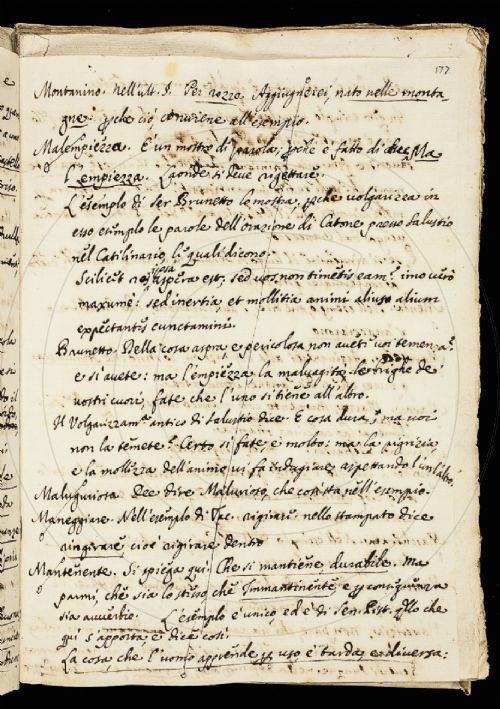 577
Montanino. Nell'ult. §. Per rozzo. Aggiugnerei, nato nelle monta
gne, pche ciò conviene all'esempio.
Malempiezza. È un mostro di parola, pche è fatto di due Ma
l'empiezza. Laonde si deve rigettare.
L'esempio di Ser Brunetto lo mostra, pche volgarizza in
esso esempio le parole dell'orazione di Catone presso Salustio
nel Catilinario, li quali dicono.
Scilicet res aspera est, sed vos non timetis eam? imo vero
maxume: sed inertia, et mollitia animi alius alium
expectantes cunctamini.
Brunetto. Della cosa aspra, e pericolosa non aveti voi temenza?
e si avete: ma l'empiezza, la malvagità, le brighe de
vostri cuori fate che l'uno si tiene all'altro.
Il Volgarizzam.º antico di Salustio dice. È cosa dura, ma voi
non la temete? Certo si fate, e molto: ma la pigrizia
e la mollezza dell'animo vi fa indugiare aspettando l'un l'altro.
Malugurosa Dee dire Maluriosa, che così sta nell'esempio.
Maneggiare. Nell'esempio di rigirare nello stampato dice
ringirare cioè rigirare dentro
Mantenente. Si spiega qui Che si mantiene, durabile. Ma
parmi, che sia lo stesso che Immantinente, e p conseguenza
sia avverbio. L'esempio è unico, ed è di Sen. Pist. qllo che
qui s'apporta, e dice così.
La cosa, che l'uomo apprende p uso, è tarda, e diversa: